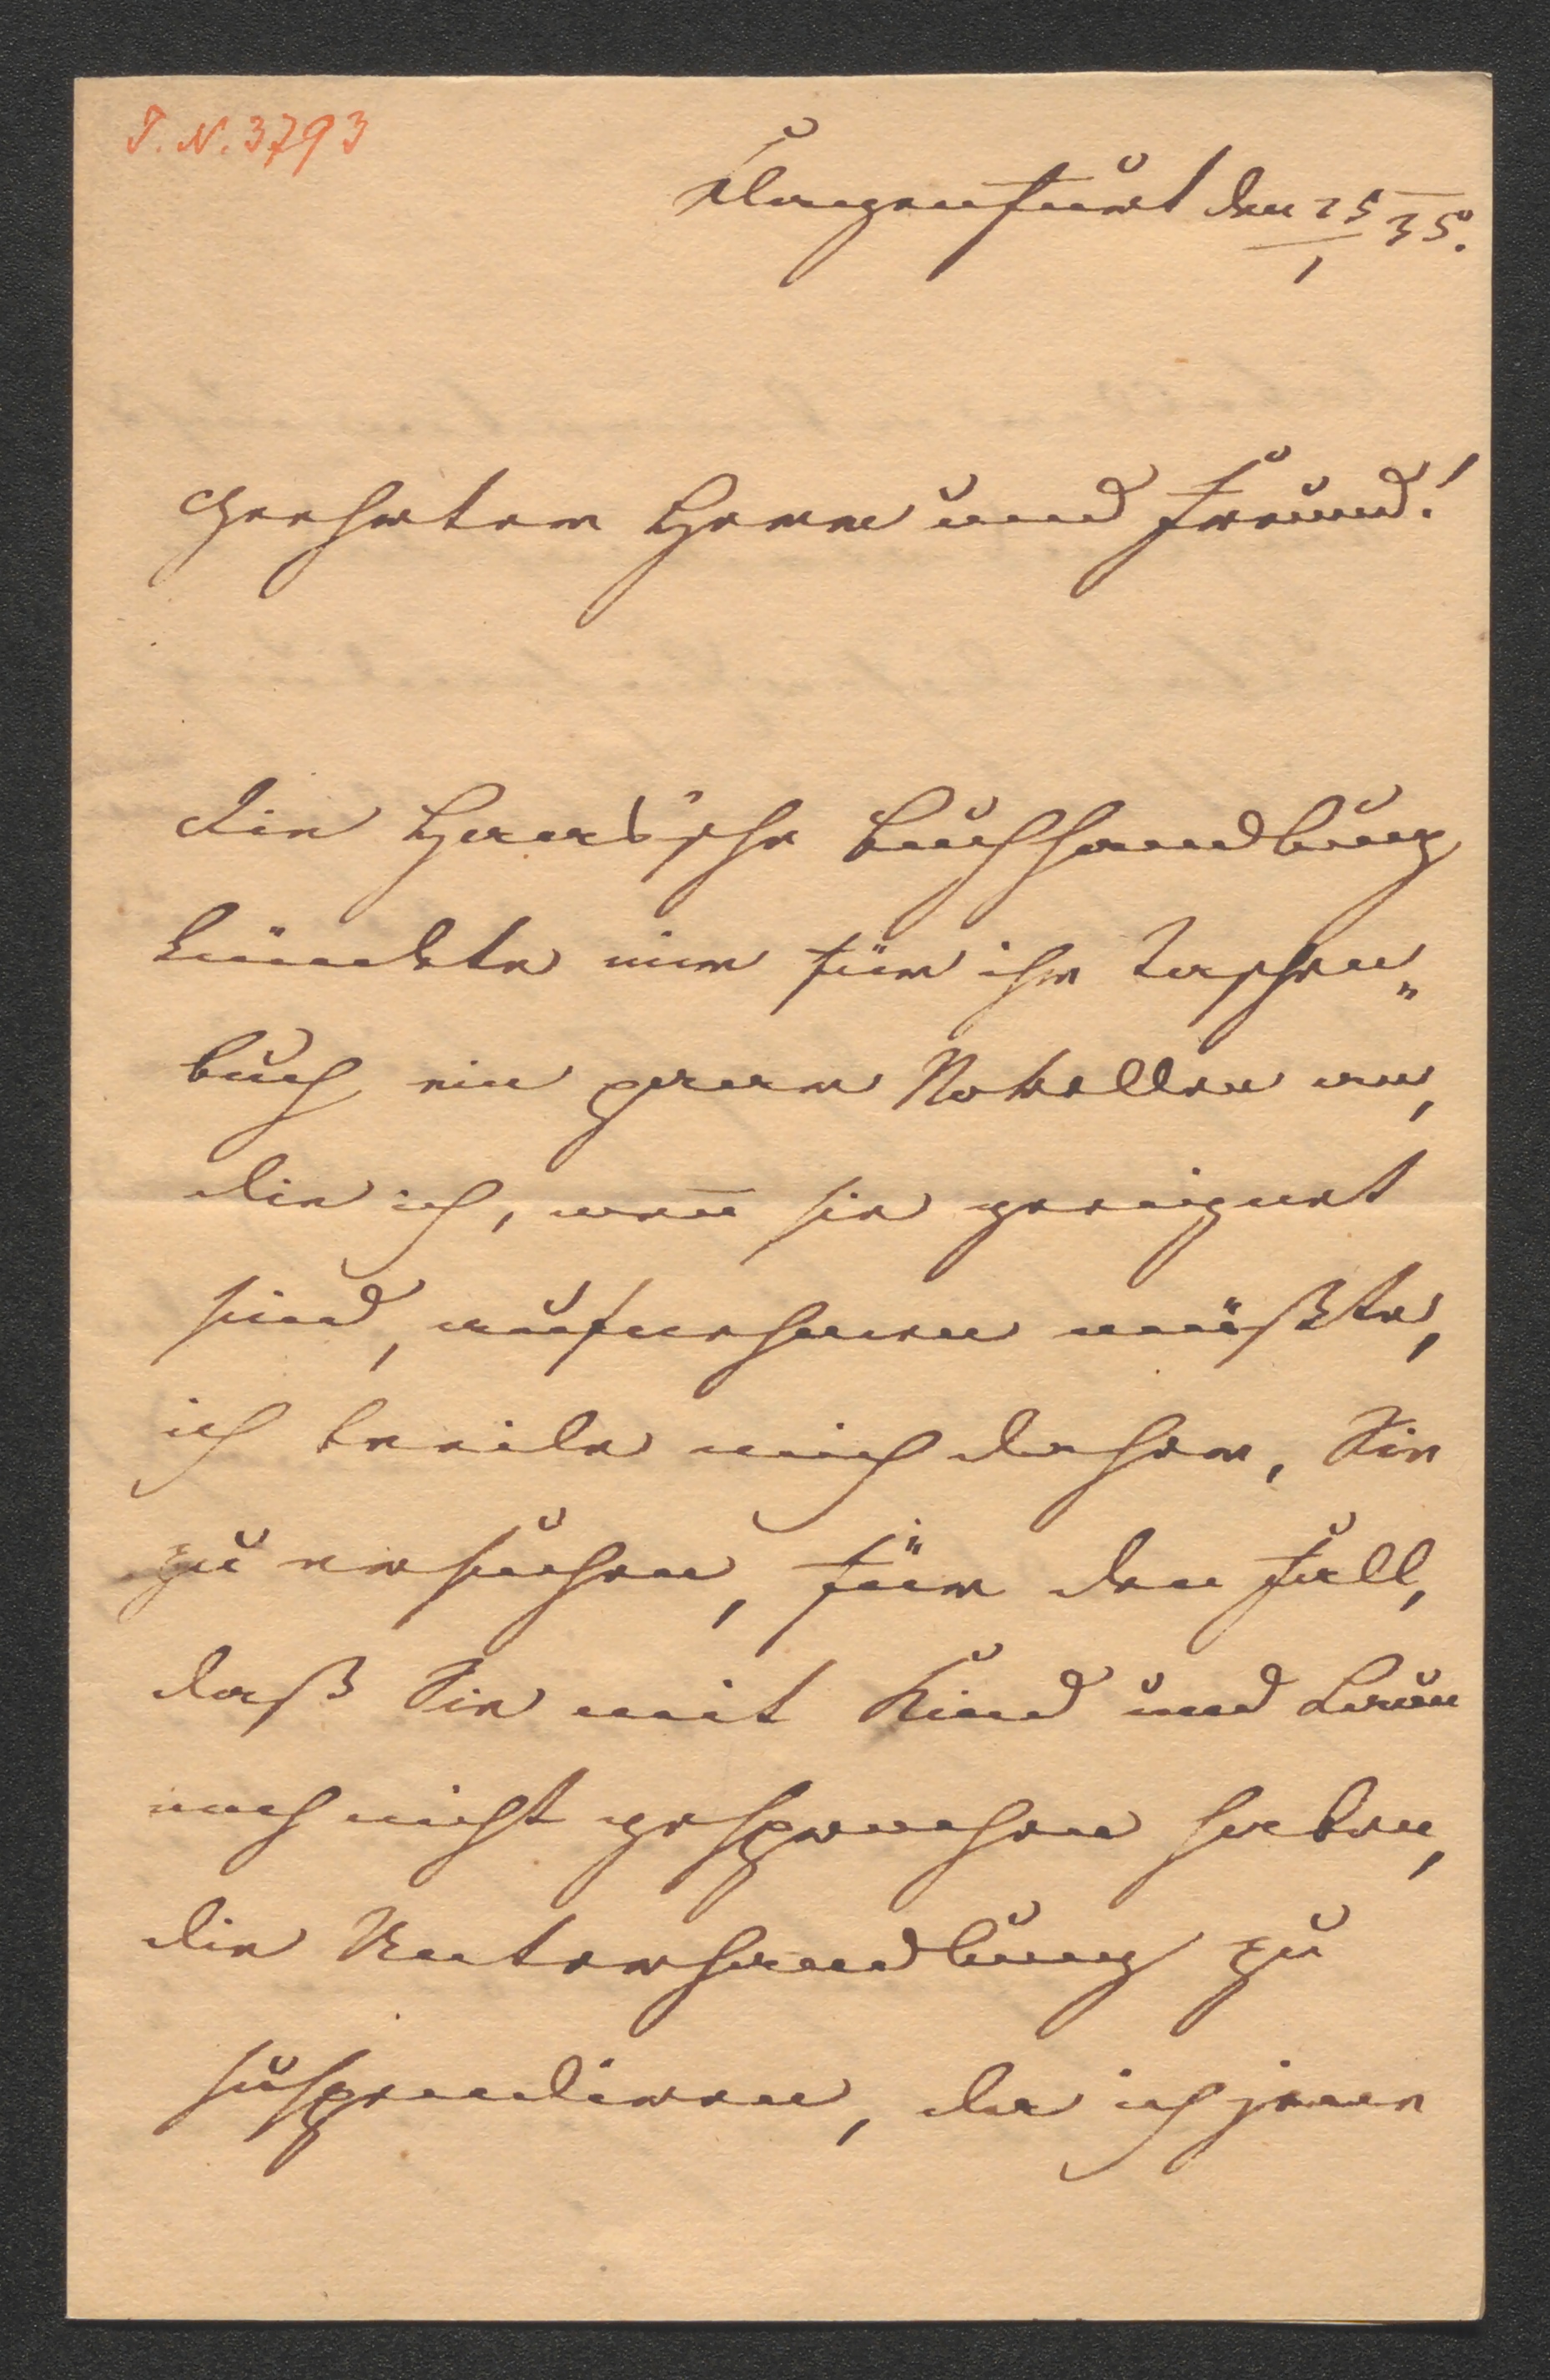 I. N. 3793
Klagenfurt den 25/1 35.
Geehrter Herr und Freund!
Die Haas'sche Buchhandlung
kündete mir für ihr Taschen„
buch ein paar Novellen an,
die ich, weñ sie geeignet
sind, aufnehmen müßte,
ich beeile mich daher, Sie
zu ersuchen, für den Fall,
daß Sie mit Kind und
noch nicht gesprochen haben,
die Unterhandlung zu
suspendieren, da ich jene